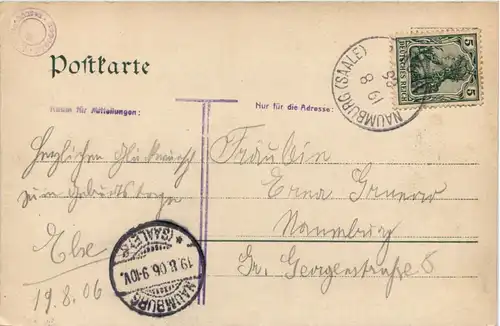 Postkarte
Raum für Mitteilungen:
Nur für die Adresse:
NAUMBURG (SAALE)
19 8
5 DEUTSCHES REICH 5
Herzlichen Glückwunsch
zum Geburtstage
Else
19.8.06
Fräulein
Erna
Naumburg
Gr. Georgenstraße 5
NAUMBURG
*(SAALE)*
19.8.06.9-10V.